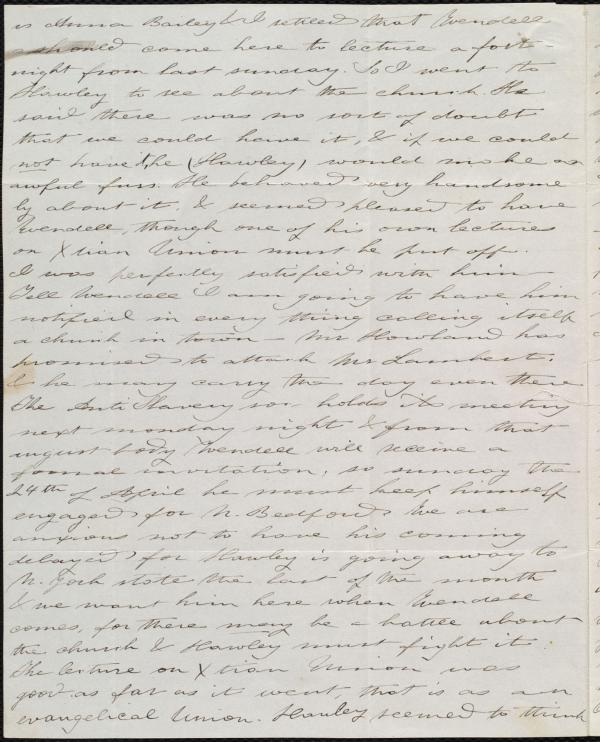 is Anna Bailey & I settled that Wendell
should come here to lecture a fort-
night from last sunday. So I went to
Hawley to see about the church. He
said there was no sort of doubt
that we could have it, & if we could
not have it, he (Hawley) would make an
awful fuss. He behaved very handsome
ly about it, & seemed pleased to have
Wendell, though one of his own lectures
on Xtian Union must be put off.
I was perfectly satisfied with him—
Tell Wendell I am going to have him
notified in every thing calling itself
a church in town— Mr Howland has
promised to attack Mr Lambert.
& he may carry the day even there
The Anti Slavery soc holds its meeting
next monday night & from that
august body Wendell will receive a
formal invitation, so sunday the
24th of April he must keep himself
engaged for N. Bedford. We are
anxious not to have his coming
delayed for Hawley is going away to
N. York state the last of the month
& we want him here when Wendell
comes, for there may be a battle about
the church & Hawley must fight it.
The lecture on Xtian Union was
good as far as it went, that is as an
evangelical Union. Hawley seemed to think